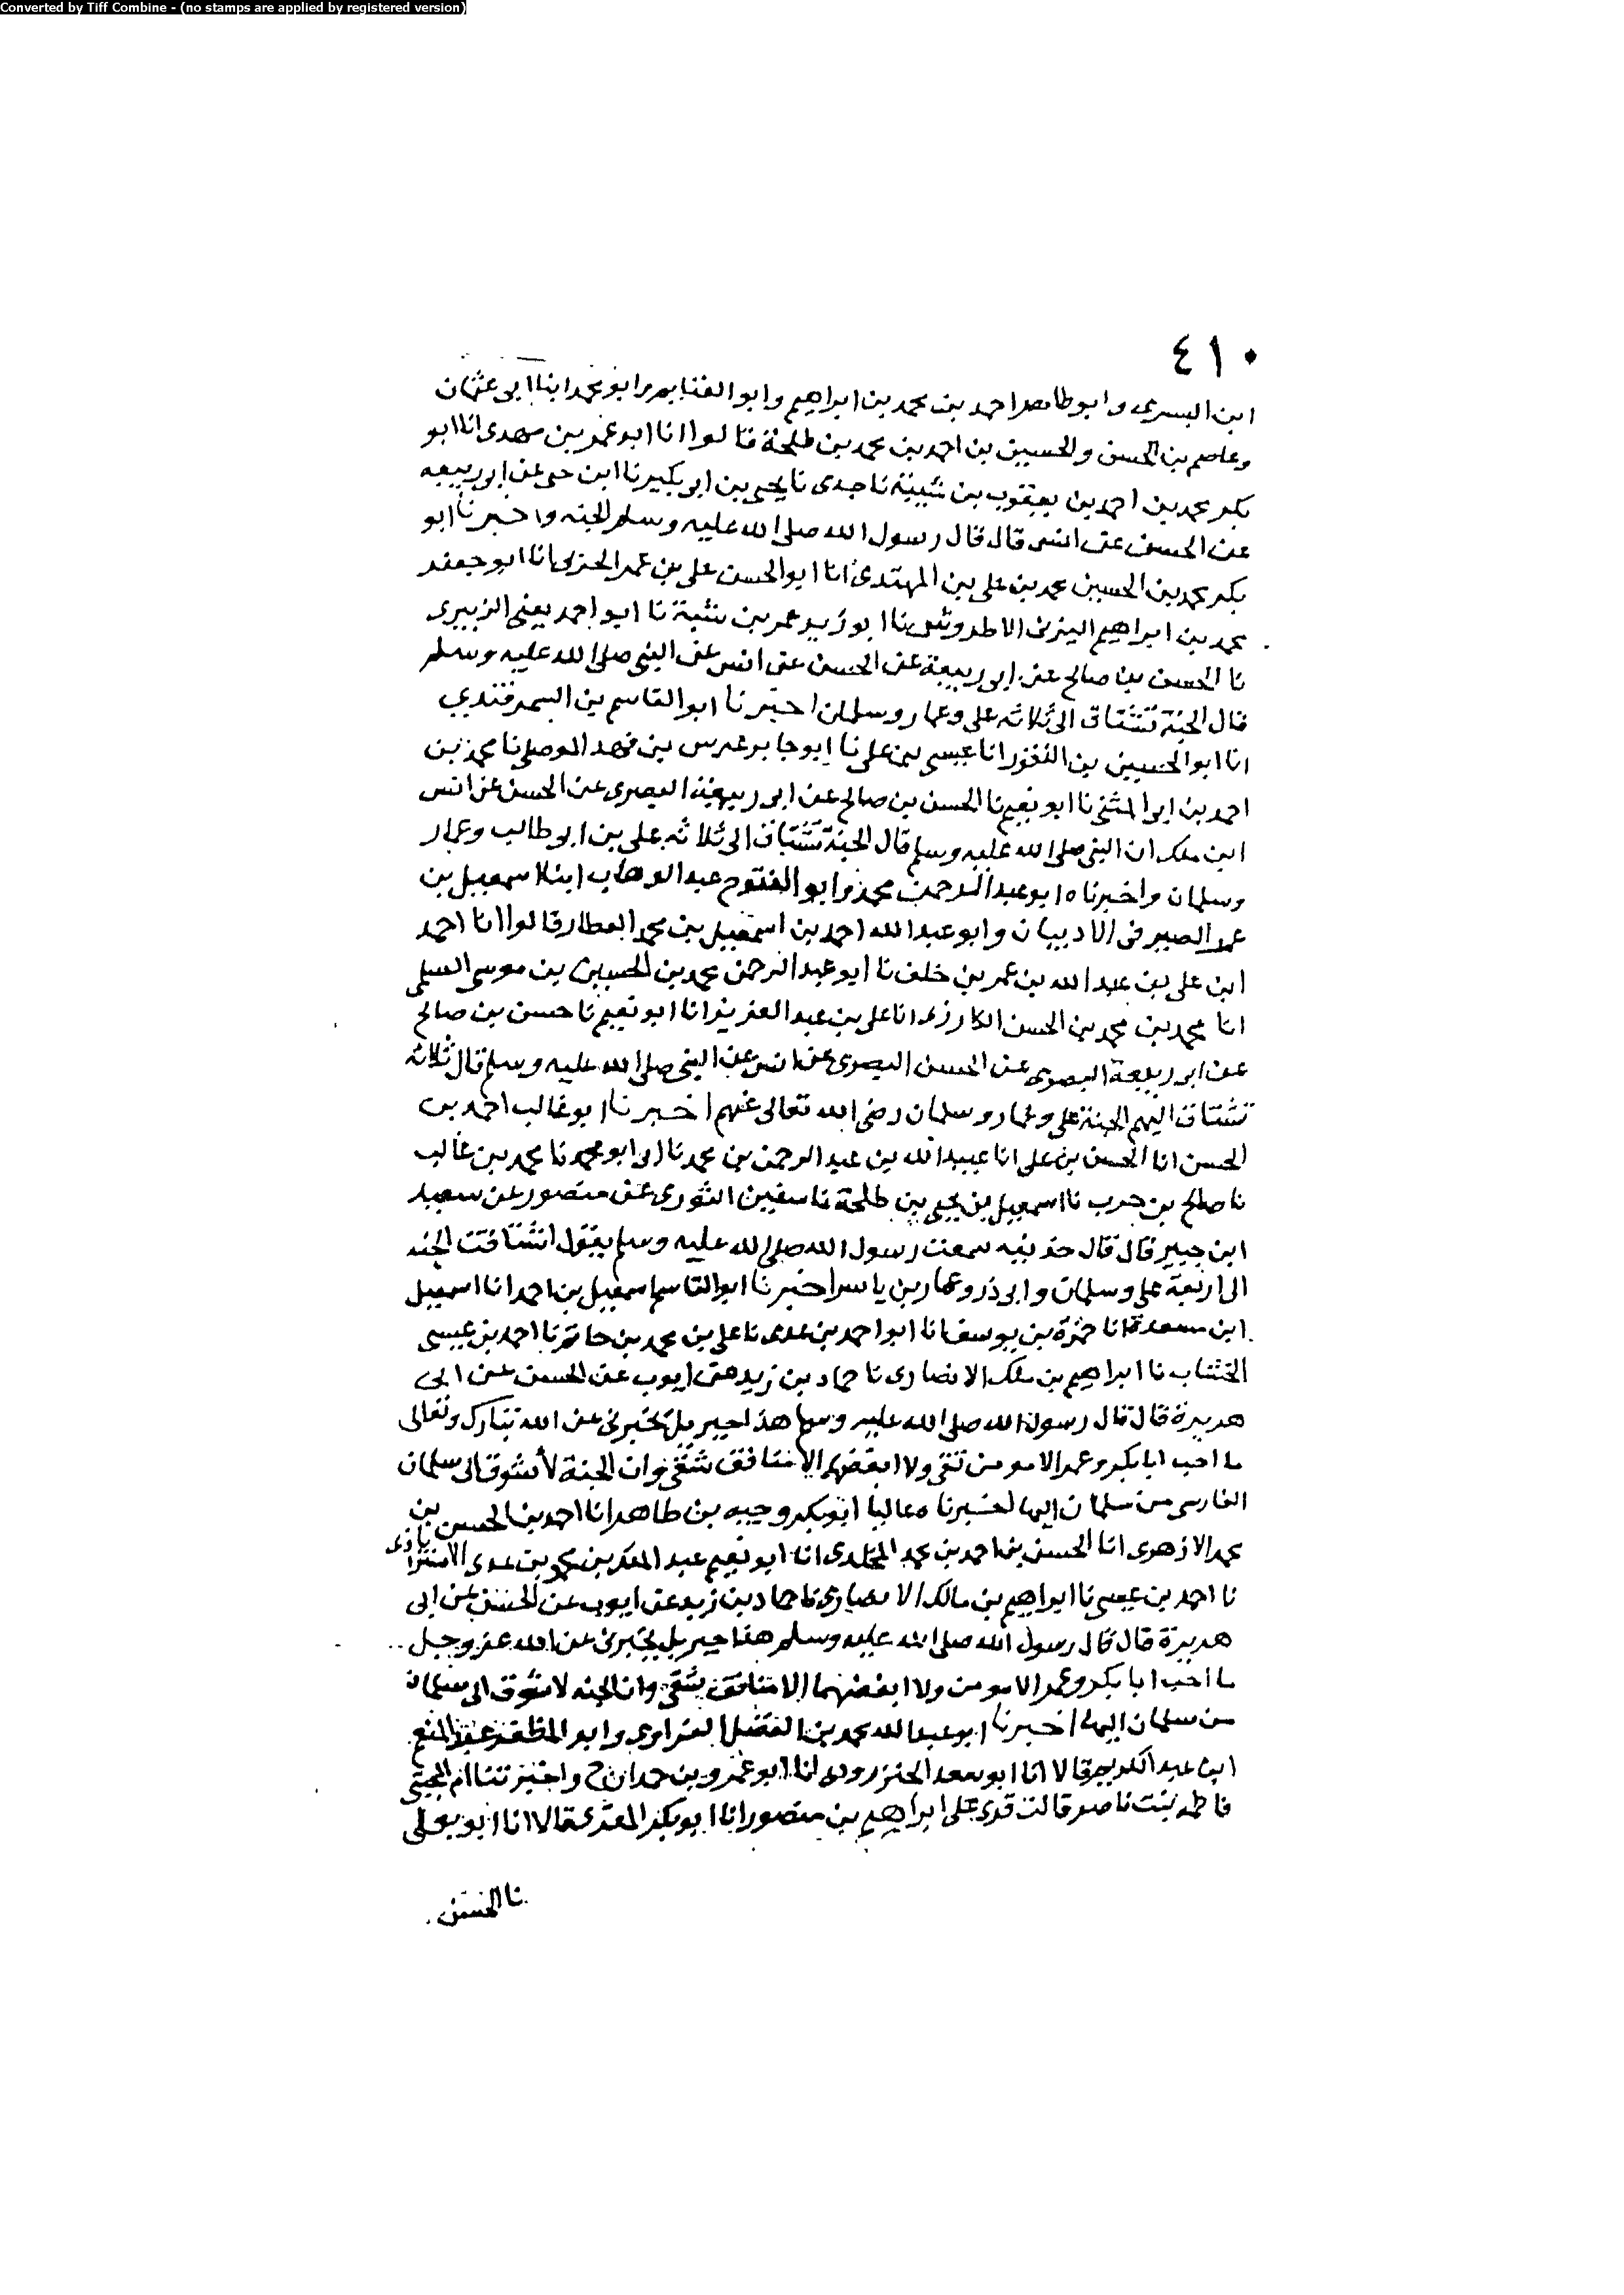 Converted by Tiff Combine - (no stamps are applied by registered version)
٤١٠
ابن البسري وابو طاهر احمد بن محمد بن ابراهيم وابو الغنايم وابو محمد ابنا ابي عثمان
وعاصم بن الحسن والحسين بن احمد بن محمد بن طلحة قالوا انا ابو عمر بن مهدي انا ابو
بكر محمد بن احمد بن يعقوب بن شيبة نا جدي نا يحيى بن ابي بكير نا ابن حي عن ابي ربيعه
عن الحسن عن انس قال قال رسول الله صلى الله عليه وسلم الجنه واخبرنا ابو
بكر محمد بن الحسين محمد بن علي بن المهتدي انا ابو الحسن علي بن عمر الحربي انا ابو جعفر
محمد بن ابراهيم الاطروش نا ابو زيد عمر بن شبة نا ابو احمد يعني الزبيري
نا الحسن بن صالح عن ابي ربيعة عن الحسن عن انس عن النبي صلى الله عليه وسلم
قال الجنة تشتاق الى ثلاثه علي وعمار وسلمان اخبرنا ابو القاسم بن السمرقندي
انا ابو الحسين بن النقور انا عيسى بن علي نا ابو جابر عرس بن فهد الموصلي نا محمد بن
احمد بن ابي المثنى نا ابو نعيم نا الحسن بن صالح عن ابي ربيعة البصري عن الحسن عن انس
ابن ملك ان النبي صلى الله عليه وسلم قال الجنة تشتاق الى ثلاثه علي بن ابي طالب وعمار
وسلمان واخبرناه ابو عبد الرحمن محمد وابو الفتوح عبد الوهاب ابنا اسمعيل بن
عمر الصيرفي الاديبان وابو عبد الله احمد بن اسمعيل بن محمد العطار قالوا انا احمد
ابن علي بن عبد الله بن عمر بن خلف نا ابو عبد الرحمن محمد بن الحسين بن موسى السلمي
انا محمد بن محمد بن الحسن الكارزي انا علي بن عبد العزيز انا ابو نعيم نا حسن بن صالح
عن ابي ربيعة البصري عن الحسن البصري عن انس عن النبي صلى الله عليه وسلم قال ثلاثه
تشتاق اليهم الجنة علي وعمار وسلمان رضي الله تعالى عنهم اخبرنا ابو غالب احمد بن
الحسن انا الحسن بن علي انا عبيد الله بن عبد الرحمن بن محمد نا ابي ابو محمد نا محمد بن غالب
نا صالح بن حرب نا اسمعيل بن يحيى بن طلحة نا سفين الثوري عن منصور عن سعيد
ابن جبير قال قال حذيفه سمعت رسول الله صلى الله عليه وسلم يقول اشتاقت الجنه
الى اربعة علي وسلمان وابي ذر وعمار بن ياسر اخبرنا ابو القاسم اسمعيل بن احمد انا اسمعيل
ابن مسعدة انا حمزة بن يوسف انا ابو احمد بن عدي نا علي بن محمد بن حاتم نا احمد بن عيسى
الخشاب نا ابراهيم بن ملك الانصاري نا حماد بن زيد عن ايوب عن الحسن عن ابي
هريرة قال قال رسول الله صلى الله عليه وسلم هذا جبريل يخبرني عن الله تبارك وتعالى
ما احب ابا بكر وعمر الا مومن تقي ولا ابغضهما الا منافق شقي وان الجنة لأشوق الى سلمان
الفارسي من سلمان اليها اخبرناه عاليا ابو بكر وجيه بن طاهر انا احمد بن الحسن بن
محمد الازهري انا الحسن بن احمد بن محمد المخلدي انا ابو نعيم عبد الملك بن محمد بن عدي الاستراباذي
نا احمد بن عيسى نا ابراهيم بن مالك الانصاري نا حماد بن زيد عن ايوب عن الحسن عن ابي
هريرة قال قال رسول الله صلى الله عليه وسلم هذا جبريل يخبرني عن الله عز وجل
ما احب ابا بكر وعمر الا مومن ولا ابغضهما الا منافق شقي وان الجنه لاشوق الى سلمان
من سلمان اليها اخبرنا ابو عبد الله محمد بن الفضل الفراوي وابو المظفر عبد المنعم
ابن عبد الكريم قالا انا ابو سعد الجنزرودي انا ابو عمرو بن حمدان ح واخبرتنا ام المجتبى
فاطمه بنت ناصر قالت قرى على ابراهيم بن منصور انا ابو بكر المقري قالا انا ابو يعلى
نا الحسن